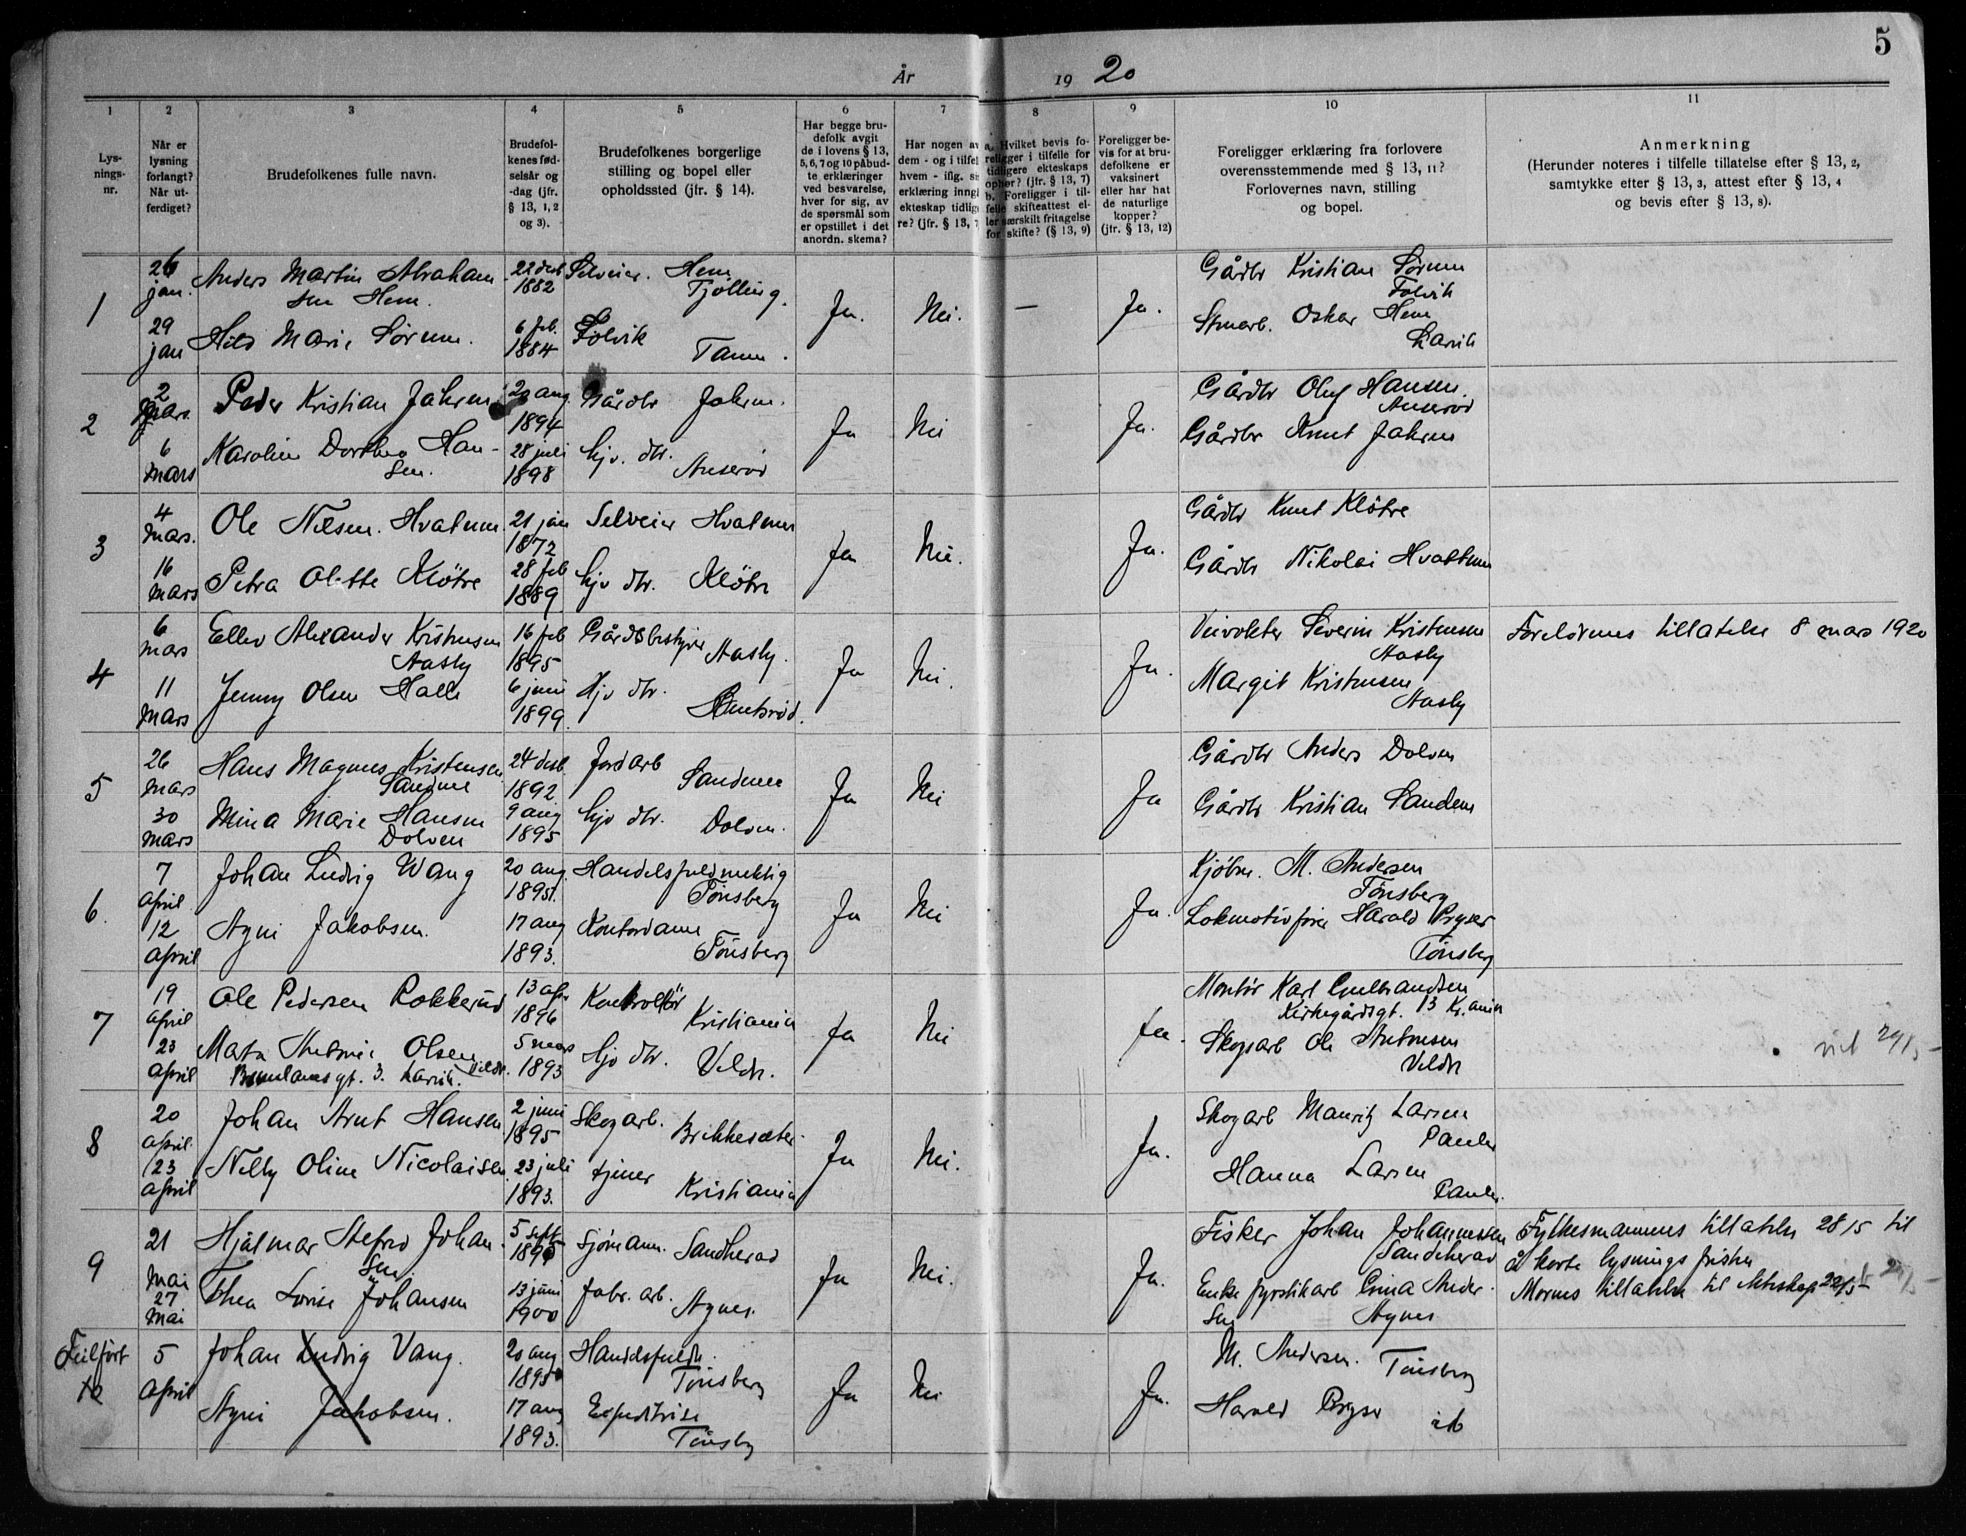 5
År 1920
1 2 3 4 5 6 7 8 9 10 11
Lys-
nings-
nr.
Når er
lysning
forlangt?
Når ut-
ferdiget?
Brudefolkenes fulle navn.
Brudefol-
kenes fød-
selsår og
-dag (jfr.
§ 13, 1, 2
og 3).
Brudefolkenes borgerlige
stilling og bopel eller
opholdssted (jfr. § 14).
Har begge bru-
defolk avgit
de i lovens § 13,
5, 6, 7 og 10 påbud-
te erklæringer
ved besvarelse,
hver for sig, av
de spørsmål som
er opstillet i det
anordn. skema?
Har nogen av
dem - og i tilfel
hvem - iflg. s
erklæring inng
ekteskap tidlig
re? (jfr. § 13, 7
a. Hvilket bevis fo-
religger i tilfelle for
tidligere ekteskaps
ophør? (jfr. § 13, 7)
b. Foreligger i til-
felle skifteattest el-
ler særskilt fritagelse
for skifte? (§ 13, 9)
Foreligger be-
vis for at bru-
defolkene er
vaksinert
eller har hat
de naturlige
kopper?
(jfr. § 13, 12)
Foreligger erklæring fra forlovere
overensstemmende med § 13, 11?
Forlovernes navn, stilling
og bopel.
Anmerkning
(Herunder noteres i tilfelle tillatelse efter § 13, 2,
samtykke efter § 13, 3, attest efter § 13, 4
og bevis efter § 13, 8).
1 26 jan. Anders Martin Abraham- 22 desb 1882 Selveier. Hem
sen Hem. Tjølling.
29 jan Hild Marie Sørum. 6 feb. 1884 Tolvik Tanum. Ja. Nei. — Ja.
Gårdbr Kristian Sørum
Tolvik
Stuearb. Oskar Hem
Larvik
2 2 mars Peder Kristian Jahren 20 aug 1894 Gårdbr Jahren.
6 mars Karoline Dorthea Han- 28 juli 1898 hjv. dtr. Anserød
sen. Ja Nei Ja.
Gårdbr Oluf Hansen.
Anserød
Gårdbr Knut Jahren
3 4 mars. Ole Nilsen Hvatum 21 jan 1872 Selveier Hvatum
16 mars Petra Olette Kløtre 28 feb 1889 hjv dtr. Kløtre Ja Nei. Ja.
Gårdbr Knut Kløtre
Gårdbr Nikolai Hvattum
4 6 mars Ellev Alexander Kristensen 16 feb 1895 Gårdsbestyrer
Aasby Aasby.
11 mars Jenny Olsen Halle 6 juni 1899. Hjv dtr. Ja Nei. Ja.
Veivokter Severin Kristensen
Aasby
Margit Kristensen
Aasby
Foreldrenes tillatelse 8 mars 1920
5 26 mars Hans Magnus Kristensen 24 desb 1892 Jordarb
Sandene Sandene
30 mars Mina Marie Hansen 9 aug 1895 hjv dtr. Dolven.
Dolven Ja Nei Ja
Gårdbr Anders Dolven
Gårdbr Kristian Sandene
6. 7 april Johan Ludvig Wang 20 aug. 1895. Handelsfuldmektig
Tønsberg
12 april Agni Jakobsen. 17 aug 1893. Kontordame
Tønsberg Ja Nei Ja.
Kjøbm. M. Andersen
Tønsberg
Lokomotivfører Harald Pryser
Tønsberg
7 19 april Ole Pedersen Rokkerud 13 apr 1896 Kontrollør
Kristiania
23 april Marta Olsen 5 mars 1893 hjv dtr. Veldre.
gt. 3. Larvik. Ja Nei Ja.
Montør Karl Gulbrandsen
Kirkegårdsgt. 13 Kr.ania
Skogsarb Ole Antonsen
Veldre
8 20 april. Johan Arnt Hansen 2 juni 1895 Skogarb.
23 april Nelly Oline Nicolaisen 23 juli 1893. tjener
Kristiania Ja Nei. Ja.
Skogarb Mauritz Larsen
Pauler
Hanna Larsen
Pauler.
9 21 mai Hjalmar Johan- 5 sept 1895 Sjømann. Sandherad
sen
27 mai Thea Lovise Johansen 13 juni 1900 Fabr. arb. Agnes. Ja Nei. Ja.
Fisker Johan Johannessen
Sandeherad
Enke fyrstikarb Ander-
sen Agnes
Fylkesmannens tillatelse 28/5 til
å korte lysnings fristen
Morens tillatelse til ekteskap 22/5
Feilført 5 april Johan Ludvig Vang. 20 aug 1895 Handelsfuldm.
Tønsberg
Agni Jakobsen. 17 aug 1893. Expeditrise
Tønsbg Ja Nei Ja.
M. Andersen. Tønsberg
Harald Pryser